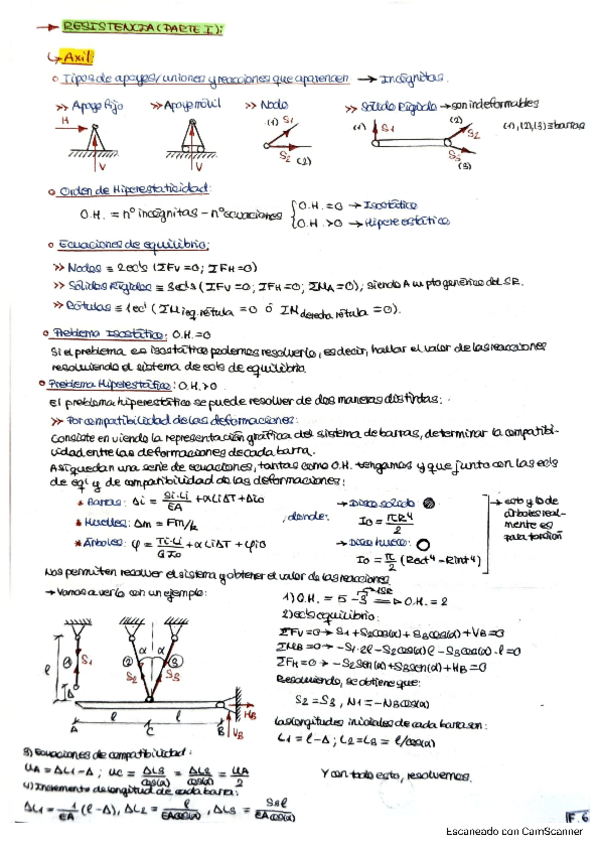 → RESISTENCIA (PARTE I):
↳ Axil:
o Tipos de apoyos/uniones y reacciones que aparecen → Incógnitas.
>> Apoyo fijo >> Apoyo móvil >> Nodo >> Sólido Rígido → son indeformables
H V V (1) S1 S2 (2) (1) S1 (2) S2 S3 (3) (1),(2),(3) ≡ barras
o Orden de Hiperestaticidad:
O.H. = nº incógnitas − nº ecuaciones { O.H. = 0 → Isostático
O.H. > 0 → Hiperestático
o Ecuaciones de equilibrio:
>> Nodos ≡ 2ec's (ΣFV = 0; ΣFH = 0)
>> Sólidos Rígidos ≡ 3ec's (ΣFV = 0; ΣFH = 0; ΣMA = 0), siendo A un pto genérico del SR.
>> Rótulas ≡ 1ec' (ΣM izq. rótula = 0 ó ΣM derecha rótula = 0).
o Problema Isostático: O.H. = 0
Si el problema es isostático podemos resolverlo, es decir, hallar el valor de las reacciones
resolviendo el sistema de ec's de equilibrio.
o Problema Hiperestático: O.H. > 0
El problema hiperestático se puede resolver de dos maneras distintas:
>> Por compatibilidad de las deformaciones:
Consiste en viendo la representación gráfica del sistema de barras, determinar la compatibi-
lidad entre las deformaciones de cada barra.
Así quedan una serie de ecuaciones, tantas como O.H. tengamos y que junto con las ec's
de eq' y de compatibilidad de las deformaciones:
* Barras: Δi = Si·Li/EA + αLiΔT + Δio
* Muelles: Δm = Fm/k
* Árboles: φ = Ti·Li/GIo + αLiΔT + φio
, donde:
→ Disco sólido
Io = πR⁴/2
→ Disco hueco:
Io = π/2 (Rext⁴ − Rint⁴)
→ esto y lo de árboles real-
mente es
para torsión
Nos permiten resolver el sistema y obtener el valor de las reacciones
→ Vamos a verlo con un ejemplo:
1) O.H. = 5 − 3 ⇒ O.H. = 2
2) ec's equilibrio:
ΣFV = 0 → S1 + S2cos(α) + S3cos(α) + VB = 0
ΣMB = 0 → −S1·2l − S2cos(α)l − S3cos(α)·l = 0
ΣFH = 0 → −S2sen(α) + S3sen(α) + HB = 0
Resolviendo, se obtiene que:
S2 = S3, N1 = −N2cos(α)
Las longitudes iniciales de cada barra son:
L1 = l − Δ; L2 = L3 = l/cos(α)
l ① S1 Δ ② S2 α α ③ S3 A l C l B HB VB
3) Ecuaciones de compatibilidad:
UA = ΔL1 − Δ; UC = ΔL2/cos(α) = ΔL3/cos(α) = UA/2
Y con todo esto, resolvemos.
4) Incremento de longitud de cada barra:
ΔL1 = 1/EA (l − Δ), ΔL2 = l/EAcos(α), ΔL3 = S3l/EAcos(α)
F. 6
Escaneado con CamScanner